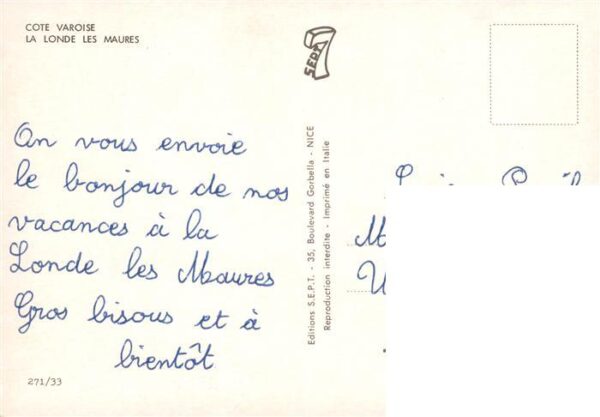 COTE VAROISE
LA LONDE LES MAURES
SEPT 7
On vous envoie
le bonjour de nos
vacances à la
Londe les Maures
Gros bisous et à
bientôt
271/33
Editions S.E.P.T. - 35, Boulevard Gorbella - NICE
Reproduction interdite - Imprimé en Italie